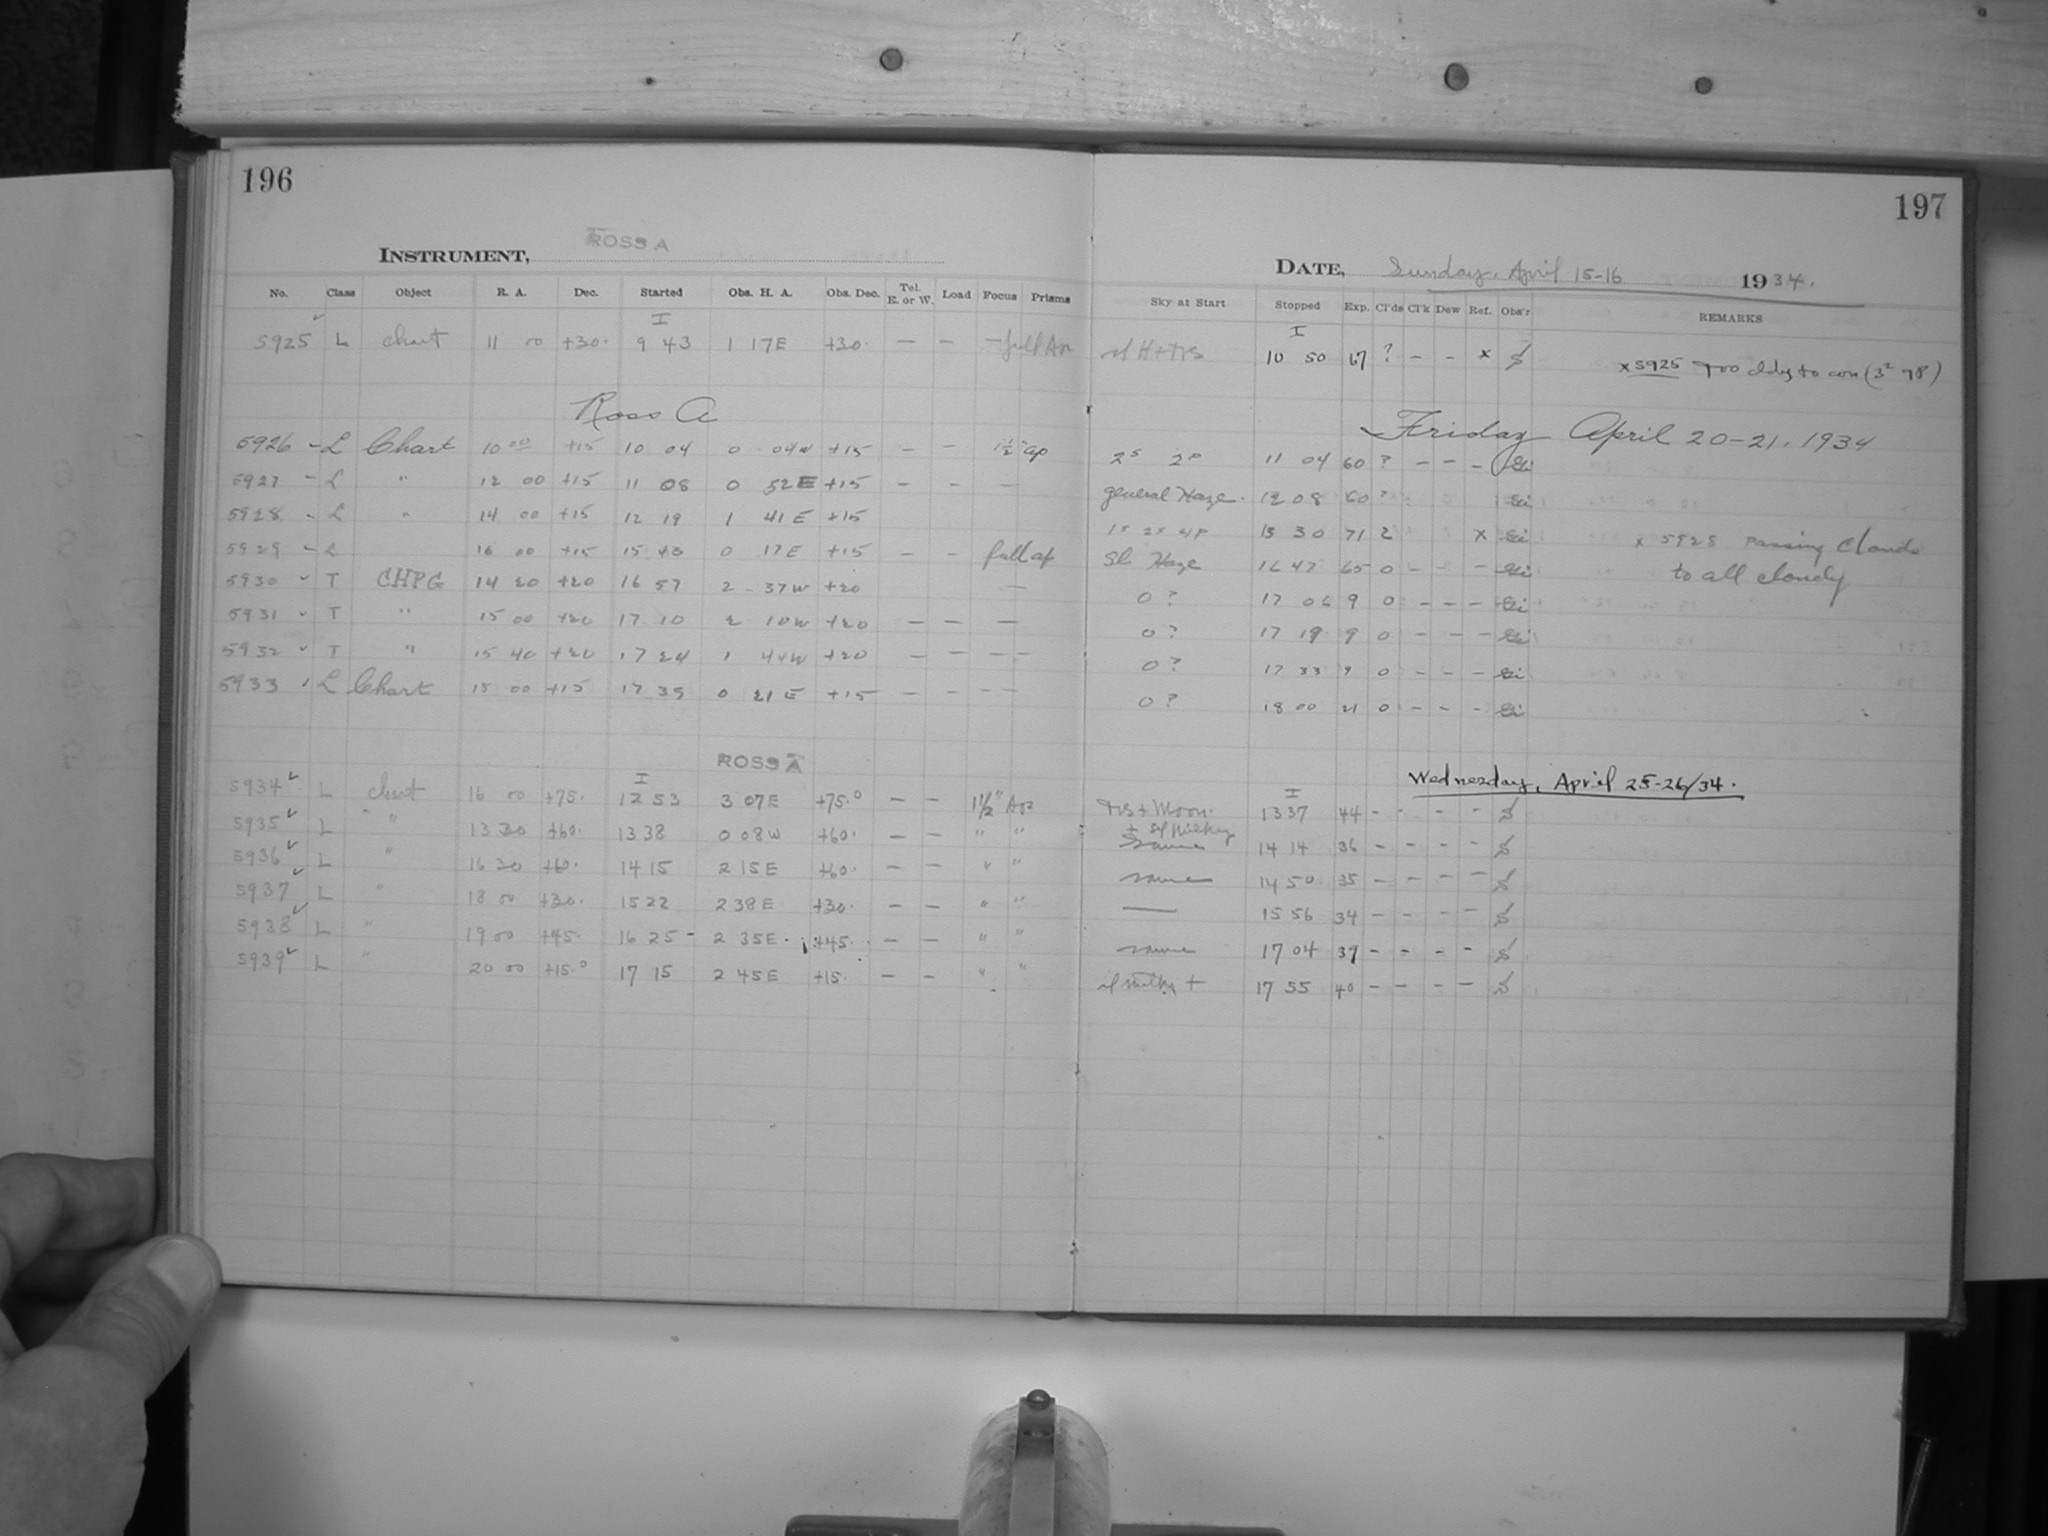 196
INSTRUMENT, ROSS A
No. Class Object R. A. Dec. Started Obs. H. A. Obs. Dec. Tel. E. or W. Load Focus Prisms
I
5925 ✓ L Chart 11 00 +30. 9 43 1 17E +30. — — — full Ap
Ross A
5926 - L Chart 10 00 +15 10 04 0 04W +15 — — 1½" ap
5927 - L " 12 00 +15 11 08 0 52E +15 — — —
5928 - L " 14 00 +15 12 19 1 41E +15
5929 - L 16 00 +15 15 43 0 17E +15 — — full ap
5930 ✓ T CHPG 14 20 +20 16 57 2 37W +20 —
5931 ✓ T " 15 00 +20 17 10 2 10W +20 — — —
5932 ✓ T " 15 40 +20 17 24 1 44W +20 — — — —
5933 ✓ L Chart 18 00 +15 17 39 0 21E +15 — — — —
ROSS A
I
5934 ✓ L chart 16 00 +75. 12 53 3 07E +75.° — — 1½" Ap
5935 ✓ L " 13 30 +60. 13 38 0 08W +60. — — " "
5936 ✓ L " 16 30 +60. 14 15 2 15E +60. — — " "
5937 ✓ L " 18 00 +30. 15 22 2 38E +30. — — " "
5938 ✓ L " 19 00 +45. 16 25 2 35E +45. — — " "
5939 ✓ L " 20 00 +15.° 17 15 2 45E +15. — — " "
197
DATE, Sunday, April 15-16 1934.
Sky at Start Stopped Exp. Cl'ds Cl'k Dew Ref. Obs'r REMARKS
I
10 50 67 ? — — x S x 5925 Too cldy to con
Friday April 20-21, 1934
2s 2p 11 04 60 ? — — — Gi
general Haze. 12 08 60 ? Gi
1s 2s 4p 13 30 71 2 x Gi x 5928 Passing Clouds
to all cloudy
Sl. Haze 16 47 65 0 — — — Gi
0 ? 17 06 9 0 — — — Gi
0 ? 17 19 9 0 — — — Gi
0 ? 17 33 9 0 — — — Gi
0 ? 18 00 21 0 — — — Gi
Wednesday, April 25-26/34.
I
+ Moon. 13 37 44 — — — — S
+ sl milky
same 14 14 36 — — — — S
same 14 50 35 — — — — S
— 15 56 34 — — — — S
same 17 04 39 — — — — S
sl milky + 17 55 40 — — — — S